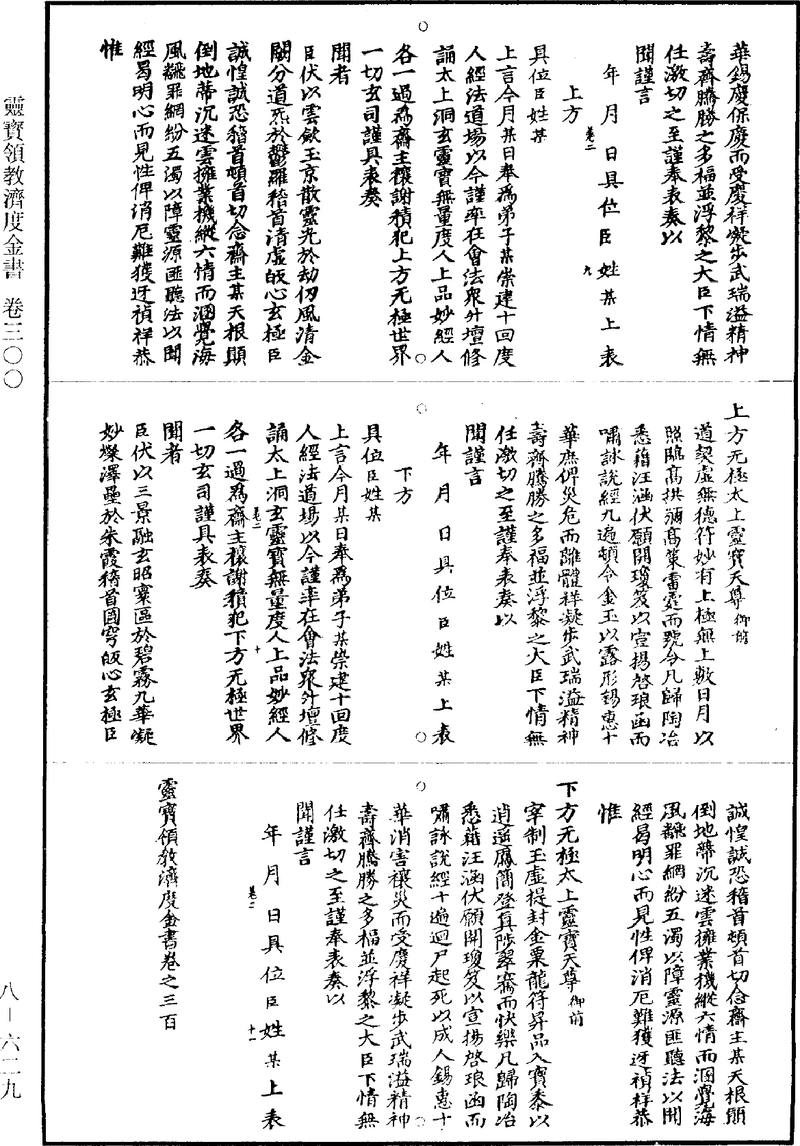 華錫慶保慶而受慶祥凝步武瑞溢精神
壽齊騰勝之多福並浮黎之大臣下情無
任激切之至謹奉表奏以
聞謹言
年月日具位臣姓某上表
卷二 九
上方
具位臣姓某
上言今月某日奉為弟子某崇建十回度
人經法道場以今謹率在會法眾升壇修
誦太上洞玄靈寶無量度人上品妙經人
各一過為齋主禳謝積犯上方无極世界
一切玄司謹具表奏
聞者
臣伏以雲斂玉京散靈光於劫仞風清金
闕分道炁於鬱羅稽首清虛皈心玄極臣
誠惶誠恐稽首頓首切念齋主某天根顯
倒地蒂沉迷雲擁業機縱六情而涸覺海
風飜罪網紛五濁以障靈源匪聽法以聞
經曷明心而見性俾消厄難獲迓禎祥恭
惟
上方无極太上靈寶天尊御前
道契虛無德符妙有上極無上敷日月以
照臨高拱彌高策雷霆而號令凡歸陶冶
悉藉汪涵伏願開瓊笈以宣揚啓琅函而
嘯詠說經九遍頓令金玉以露形錫惠十
華庶俾災危而離體祥凝步武瑞溢精神
壽齊騰勝之多福並浮黎之大臣下情無
任激切之至謹奉表奏以
聞謹言
年月日具位臣姓某上表
下方
具位臣姓某
上言今月某日奉為弟子某崇建十回度
人經法道場以今謹率在會法眾升壇修
誦太上洞玄靈寶無量度人上品妙經人
卷二 十
各一過為齋主禳謝積犯下方无極世界
一切玄司謹具表奏
聞者
臣伏以三景融玄昭寀區於碧霧九華凝
妙燦澤壘於朱霞稽首圓穹皈心玄極臣
誠惶誠恐稽首頓首切念齋主某天根顯
倒地蒂沉迷雲擁業機縱六情而涸覺海
風飜罪網紛五濁以障靈源匪聽法以聞
經曷明心而見性俾消厄難獲迓禎祥恭
惟
下方无極太上靈寶天尊御前
宰制玉虛提封金粟龍符昇品入寶泰以
逍遥鳳簡登真陟翠齋而快樂凡歸陶冶
悉藉汪涵伏願開瓊笈以宣揚啓琅函而
嘯詠說經十遍迴尸起死以成人錫惠十
華消害禳災而受慶祥凝步武瑞溢精神
壽齊騰勝之多福並浮黎之大臣下情無
任激切之至謹奉表奏以
聞謹言
年月日具位臣姓某上表
卷二 十一
靈寶領教濟度金書卷之三百
靈寶領教濟度金書 卷三〇〇
八—六二九